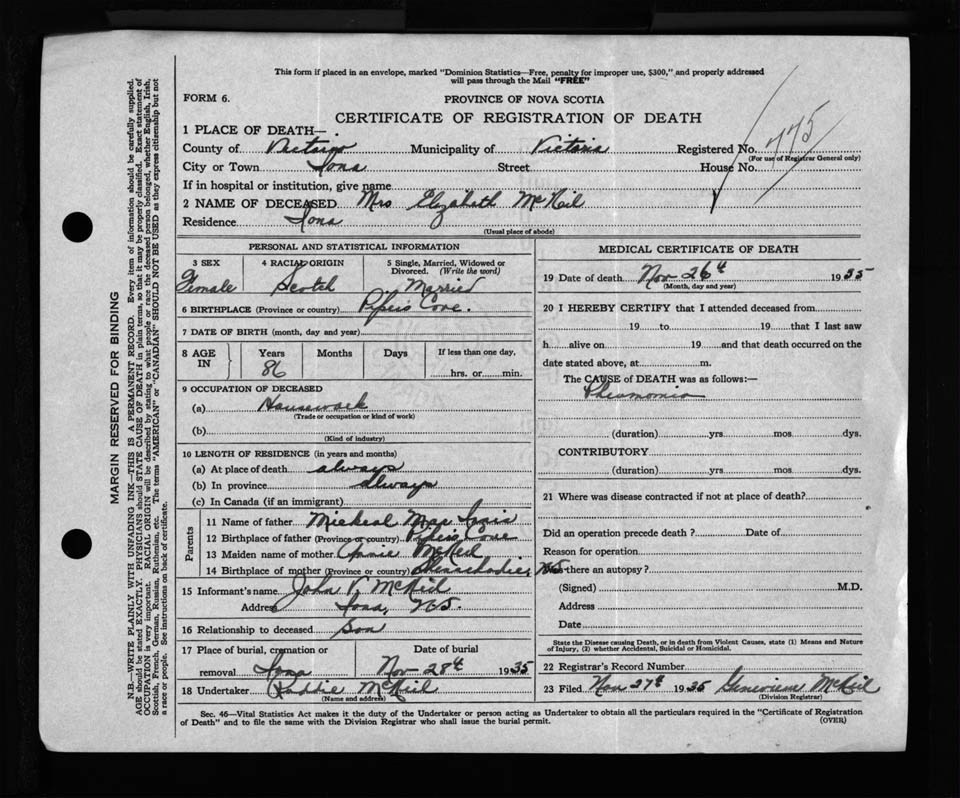 This form if placed in an envelope, marked "Dominion Statistics—Free, penalty for improper use, $300," and properly addressed
will pass through the Mail "FREE"
FORM 6.
PROVINCE OF NOVA SCOTIA
CERTIFICATE OF REGISTRATION OF DEATH
775
1 PLACE OF DEATH—
County of Victoria Municipality of Victoria Registered No.
(For use of Registrar General only)
City or Town Iona Street House No.
If in hospital or institution, give name
2 NAME OF DECEASED Mrs Elizabeth McNeil
Residence Iona
(Usual place of abode)
PERSONAL AND STATISTICAL INFORMATION
3 SEX 4 RACIAL ORIGIN 5 Single, Married, Widowed or
Divorced. (Write the word)
Female Scotch Married
6 BIRTHPLACE (Province or country) Pipers Cove.
7 DATE OF BIRTH (month, day and year)
8 AGE IN Years Months Days If less than one day,
86 hrs. or min.
9 OCCUPATION OF DECEASED
(a) Housework
(Trade or occupation or kind of work)
(b)
(Kind of industry)
10 LENGTH OF RESIDENCE (in years and months)
(a) At place of death always
(b) In province always
(c) In Canada (if an immigrant)
Parents
11 Name of father Micheal Mac
12 Birthplace of father (Province or country) Pipers Cove
13 Maiden name of mother Annie McNeil
14 Birthplace of mother (Province or country) NS.
15 Informant's name John V. McNeil
Address Iona, NS.
16 Relationship to deceased Son
17 Place of burial, cremation or Date of burial
removal Iona Nov 28th 1935
18 Undertaker McNeil
(Name and address)
MEDICAL CERTIFICATE OF DEATH
19 Date of death Nov 26th 1935
(Month, day and year)
20 I HEREBY CERTIFY that I attended deceased from
19 to 19 that I last saw
h alive on 19 and that death occurred on the
date stated above, at m.
The CAUSE of DEATH was as follows:—
Pheumonia
(duration) yrs. mos. dys.
CONTRIBUTORY
(duration) yrs. mos. dys.
21 Where was disease contracted if not at place of death?
Did an operation precede death? Date of
Reason for operation
Was there an autopsy?
(Signed) M.D.
Address
Date
State the Disease causing Death, or in death from Violent Causes, state (1) Means and Nature
of Injury, (2) whether Accidental, Suicidal or Homicidal.
22 Registrar's Record Number
23 Filed Nov 27th 1935 Genevieve McNeil
(Division Registrar)
Sec. 46—Vital Statistics Act makes it the duty of the Undertaker or person acting as Undertaker to obtain all the particulars required in the "Certificate of Registration
of Death" and to file the same with the Division Registrar who shall issue the burial permit.
(OVER)
MARGIN RESERVED FOR BINDING
N.B.—WRITE PLAINLY WITH UNFADING INK—THIS IS A PERMANENT RECORD. Every item of information should be carefully supplied.
AGE should be stated EXACTLY. PHYSICIANS should STATE CAUSE OF DEATH in plain terms, so that it may be properly classified. Exact statement of
OCCUPATION is very important. RACIAL ORIGIN will be described by stating to what people or race the deceased person belonged, whether English, Irish,
Scottish, French, German, Russian, Ruthenian, etc. The terms "AMERICAN" or "CANADIAN" SHOULD NOT BE USED as they express citizenship but not
a race or people. See instructions on back of certificate.